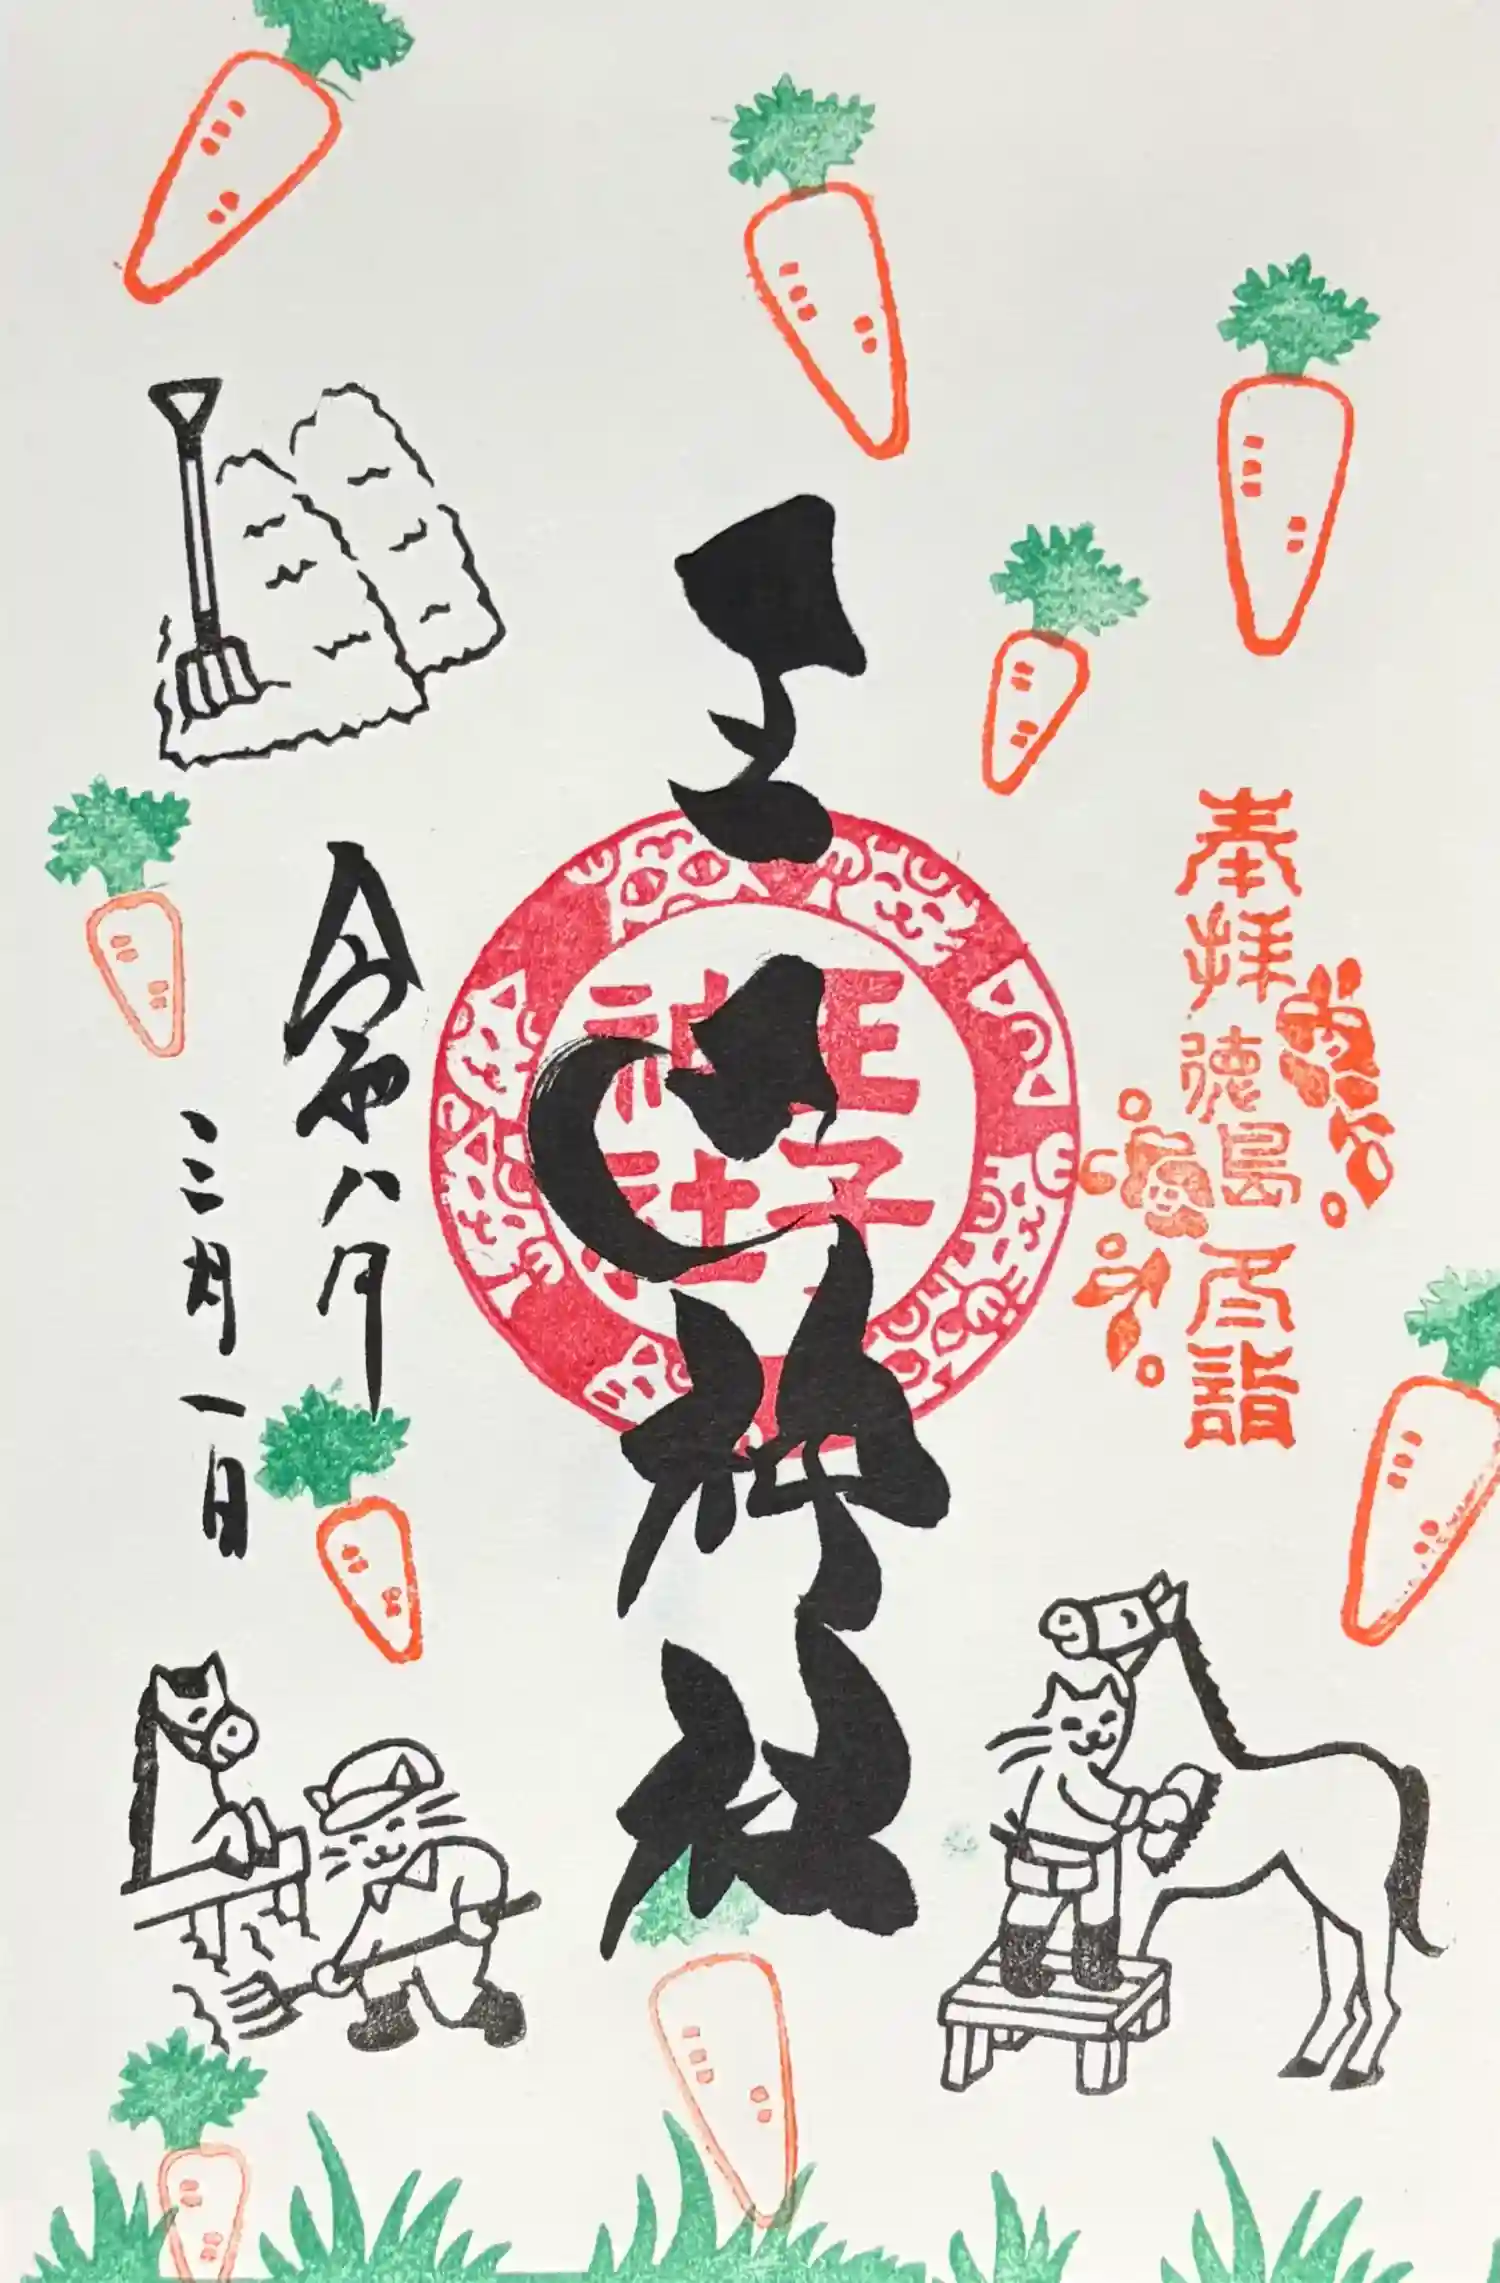 奉拝
徳島
冬詣
王子神社
王子
神社
令和八年
三月一日